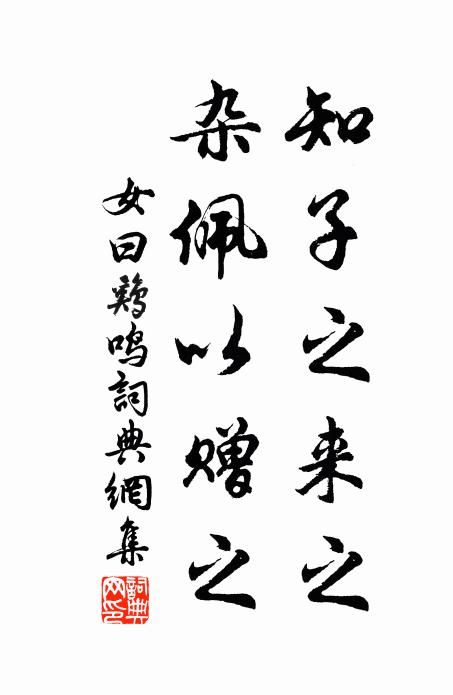 知子之来之
杂佩以赠之
女曰鷄鸣詞典網集
詞典网印